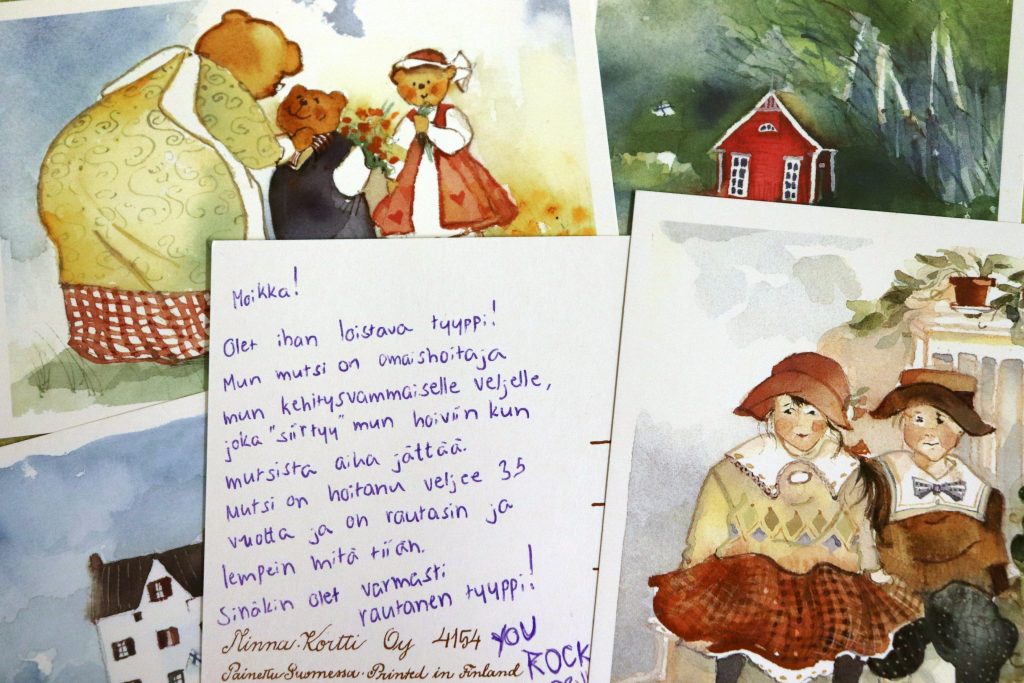 Moikka!
Olet ihan loistava tyyppi!
Mun mutsi on omaishoitaja
mun kehitysvammaiselle veljelle,
joka "siirtyy" mun hoiviin kun
mutsista aika jättää.
Mutsi on hoitanu veljee 35
vuotta ja on rautasin ja
lempein mitä tiiän.
Sinäkin olet varmasti
rautanen tyyppi!
Minna-Kortti Oy 4154
Painettu Suomessa · Printed in Finland
YOU
ROCK